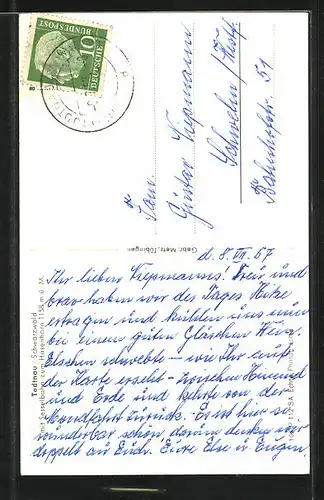 DEUTSCHE
BUNDESPOST
10
Fam.
Gustav Siepmann
Schwelm/Westf.
Bahnhofstr. 51
Gebr. Metz, Tübingen
Todtnau - Schwarzwald
mit Sesselbahn zum Hasenhorn 1158 m ü. M.
d. 8. VII. 57
Ihr lieben Siepmanns! Treu und
brav haben wir des Tages Hitze
ertragen und kühlen uns nun
bei einem guten Gläschen Wein.
Elschen schwebte - wie Ihr aus
der Karte erseht - zwischen Himmel
und Erde und kehrte von der
Mondfahrt zurück. Es ist hier so
wunderbar schön, darum denken wir
doppelt an Euch. Eure Else u Eugen